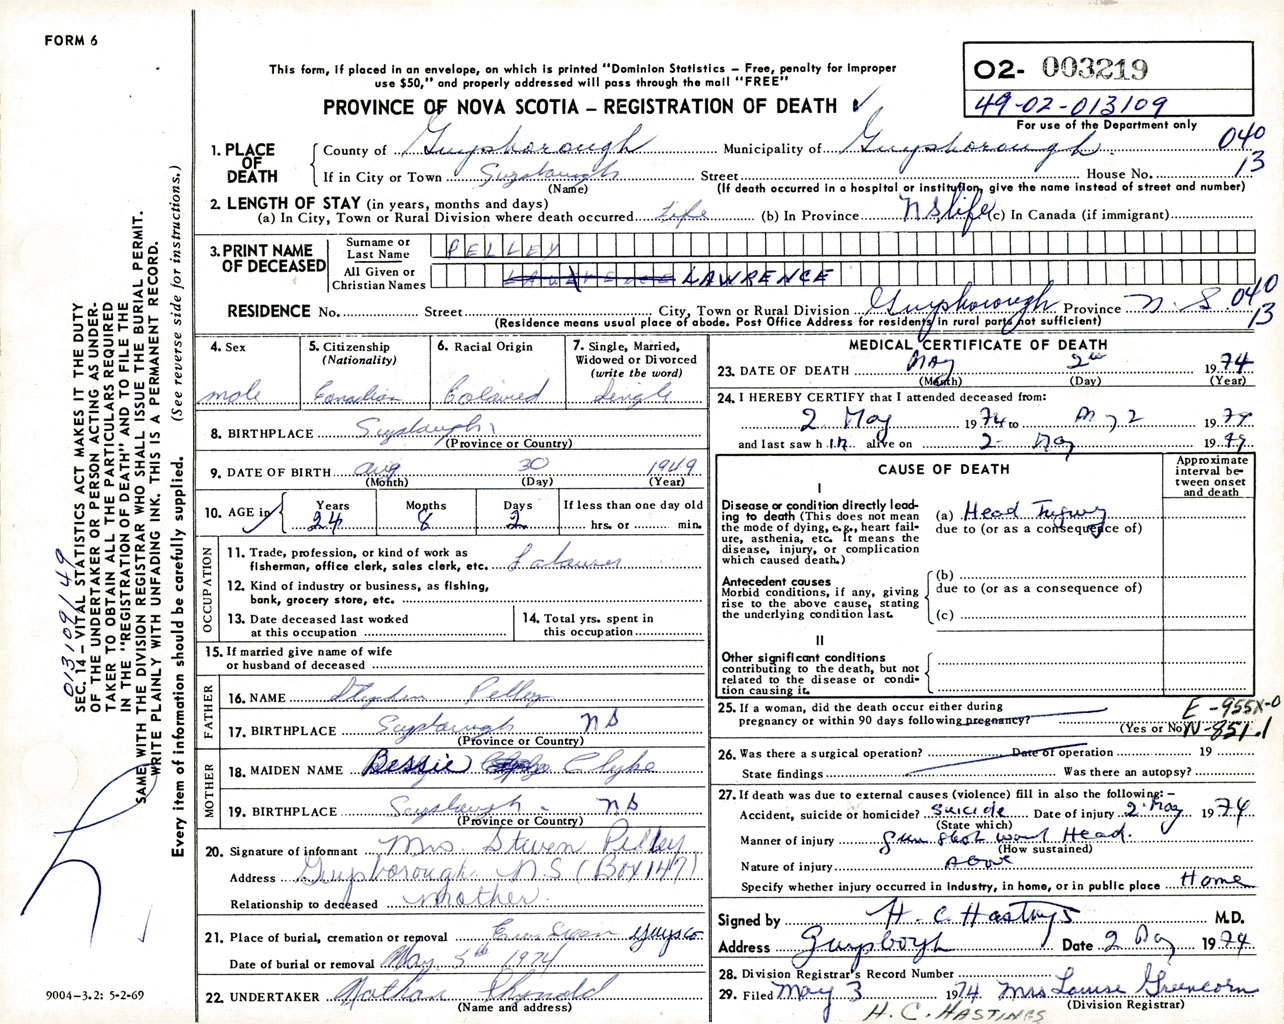 FORM 6
This form, if placed in an envelope, on which is printed "Dominion Statistics – Free, penalty for improper
use $50," and properly addressed will pass through the mail "FREE"
PROVINCE OF NOVA SCOTIA – REGISTRATION OF DEATH
02- 003219
49-02-013109
For use of the Department only
1. PLACE OF DEATH
County of Guysborough Municipality of Guysborough 040
If in City or Town Street House No. 13
(Name) (If death occurred in a hospital or institution, give the name instead of street and number)
2. LENGTH OF STAY (in years, months and days)
(a) In City, Town or Rural Division where death occurred Life (b) In Province NS life (c) In Canada (if immigrant)
3. PRINT NAME OF DECEASED
Surname or Last Name PELLEY
All Given or Christian Names LAWRENCE
RESIDENCE No. Street City, Town or Rural Division Guysborough Province N.S. 040
(Residence means usual place of abode. Post Office Address for residents in rural parts not sufficient) 13
4. Sex
male
5. Citizenship
(Nationality)
Canadian
6. Racial Origin
Colored
7. Single, Married,
Widowed or Divorced
(write the word)
Single
8. BIRTHPLACE
(Province or Country)
9. DATE OF BIRTH Aug 30 1949
(Month) (Day) (Year)
10. AGE in
Years Months Days If less than one day old
24 8 2 hrs. or min.
OCCUPATION
11. Trade, profession, or kind of work as
fisherman, office clerk, sales clerk, etc. Labourer
12. Kind of industry or business, as fishing,
bank, grocery store, etc.
13. Date deceased last worked
at this occupation
14. Total yrs. spent in
this occupation
15. If married give name of wife
or husband of deceased
FATHER
16. NAME Stephen Pelley
17. BIRTHPLACE NS
(Province or Country)
MOTHER
18. MAIDEN NAME Bessie Clyke
19. BIRTHPLACE NS
(Province or Country)
20. Signature of informant Mrs Steven Pelley
Address Guysborough N S (Box 147)
Relationship to deceased mother
21. Place of burial, cremation or removal Guysco
Date of burial or removal May 5th 1974
22. UNDERTAKER Nathan
(Name and address)
MEDICAL CERTIFICATE OF DEATH
23. DATE OF DEATH May 2 1974
(Month) (Day) (Year)
24. I HEREBY CERTIFY that I attended deceased from:
2 May 1974 to May 2 1974
and last saw h im alive on 2 May 1974
CAUSE OF DEATH
Approximate interval between onset and death
I
Disease or condition directly leading to death (This does not mean
the mode of dying, e.g., heart failure, asthenia, etc. It means the
disease, injury, or complication
which caused death.)
(a) Head Injury
due to (or as a consequence of)
Antecedent causes
Morbid conditions, if any, giving
rise to the above cause, stating
the underlying condition last.
(b)
due to (or as a consequence of)
(c)
II
Other significant conditions
contributing to the death, but not
related to the disease or condition causing it.
25. If a woman, did the death occur either during
pregnancy or within 90 days following pregnancy?
(Yes or No)
E-955X-0
N-851.1
26. Was there a surgical operation? Date of operation 19
State findings Was there an autopsy?
27. If death was due to external causes (violence) fill in also the following: –
Accident, suicide or homicide? Suicide Date of injury 2 May 1974
(State which)
Manner of injury gun shot wound Head.
(How sustained)
Nature of injury Above
Specify whether injury occurred in industry, in home, or in public place Home
Signed by H. C. Hastings M.D.
Address Guysboro Date 2 May 1974
28. Division Registrar's Record Number
29. Filed May 3 1974 Mrs Louise Greencorn
(Division Registrar)
H. C. HASTINGS
013109/49
SEC. 14 – VITAL STATISTICS ACT MAKES IT THE DUTY
OF THE UNDERTAKER OR PERSON ACTING AS UNDER-
TAKER TO OBTAIN ALL THE PARTICULARS REQUIRED
IN THE "REGISTRATION OF DEATH" AND TO FILE THE
SAME WITH THE DIVISION REGISTRAR WHO SHALL ISSUE THE BURIAL PERMIT.
WRITE PLAINLY WITH UNFADING INK. THIS IS A PERMANENT RECORD.
Every item of information should be carefully supplied. (See reverse side for instructions.)
9004–3.2: 5-2-69